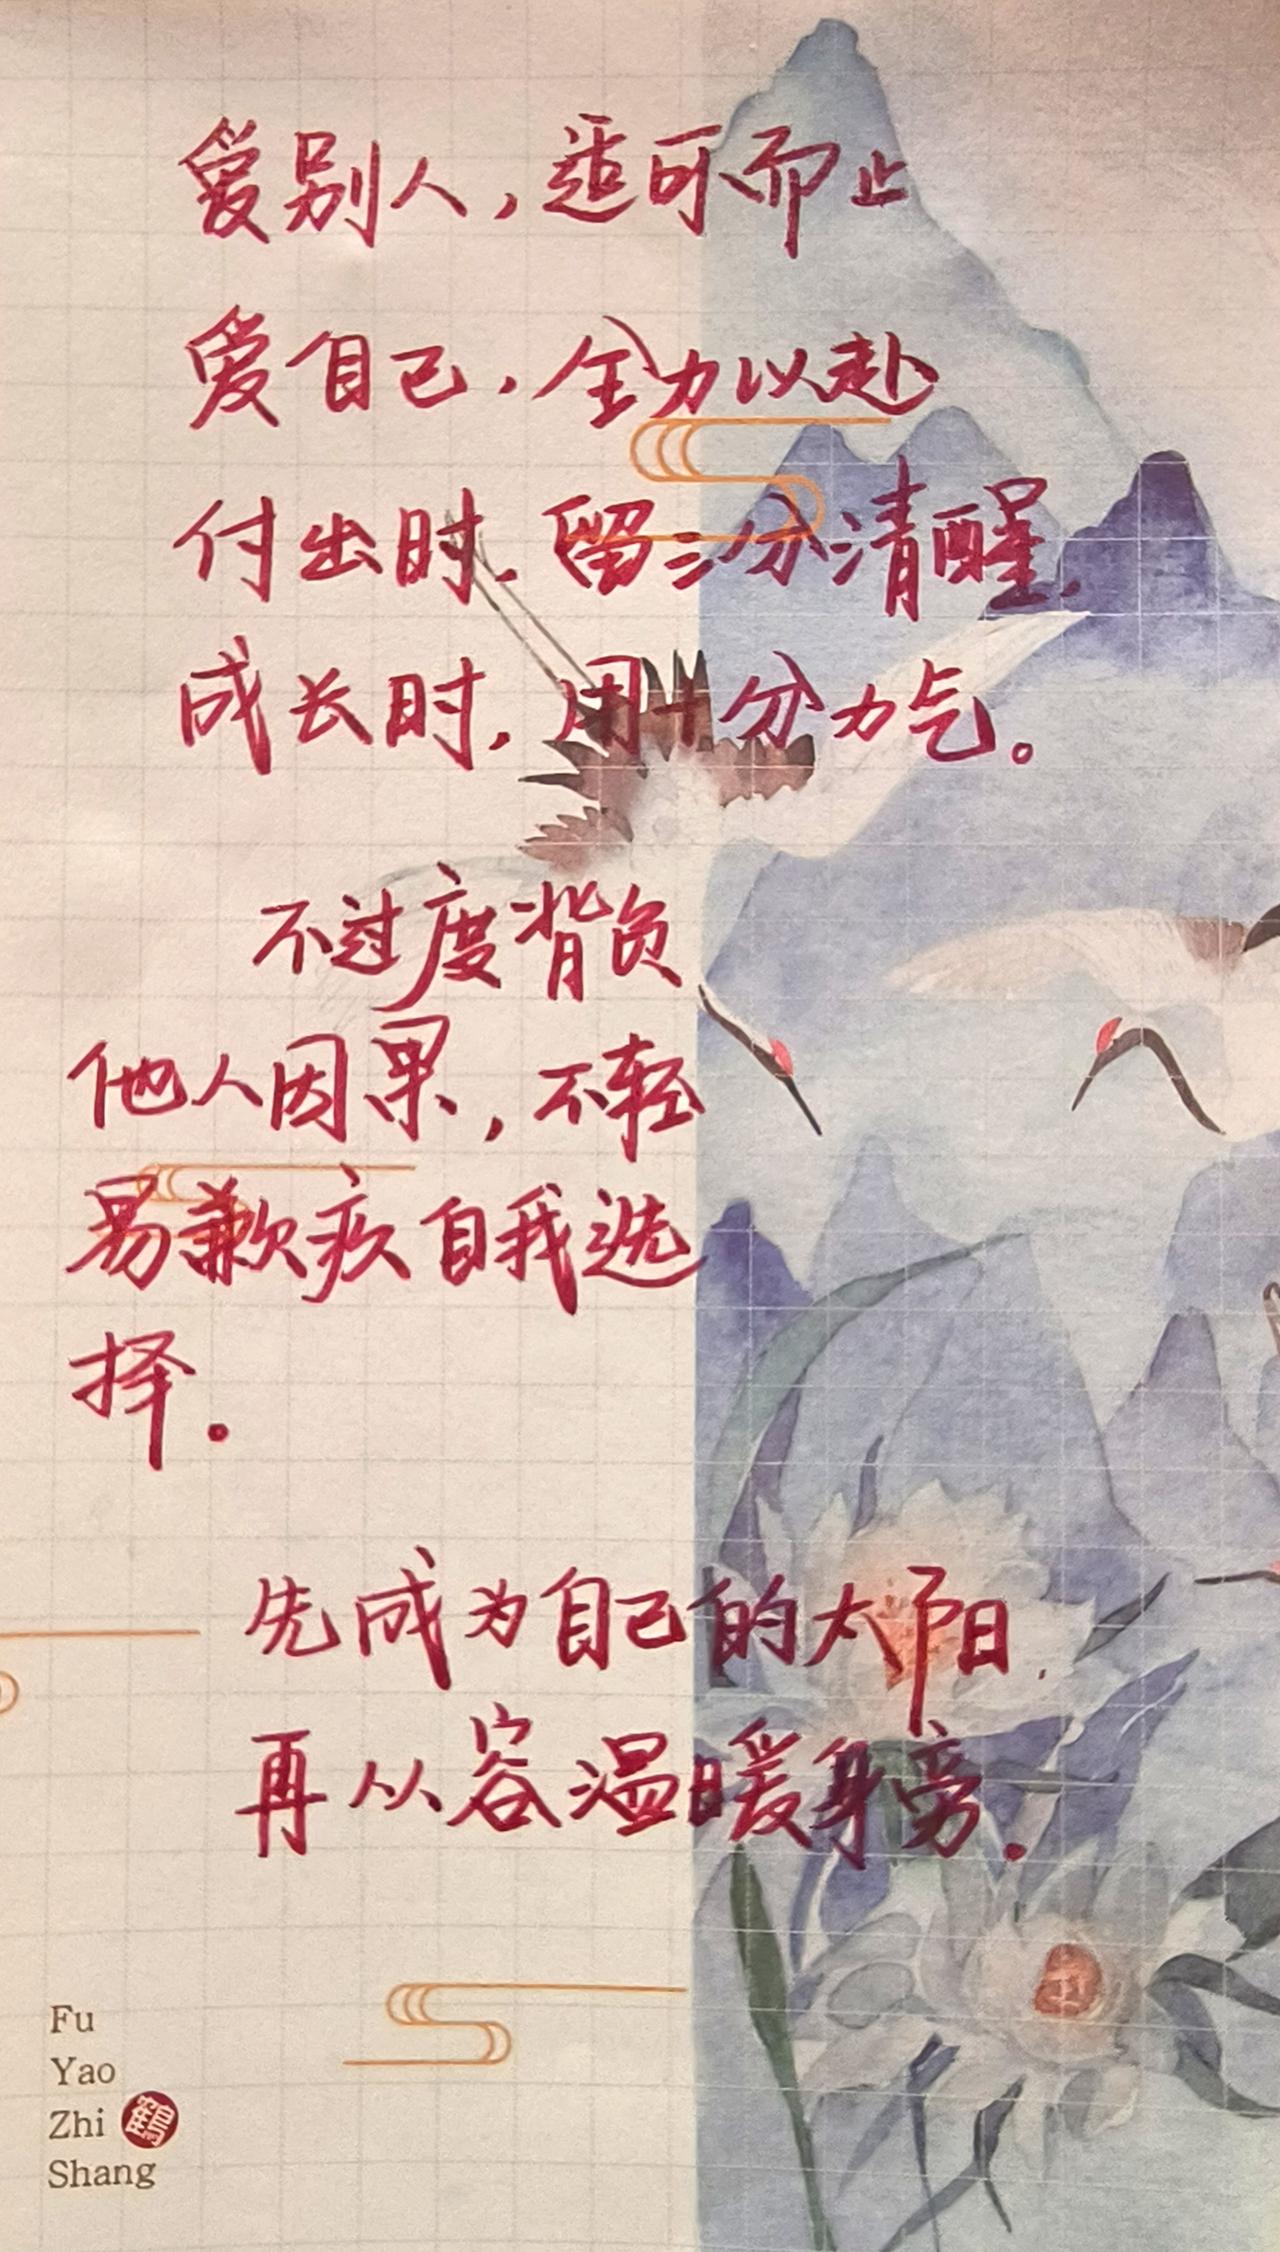 爱别人，适可而止
爱自己，全力以赴
付出时，留三分清醒，
成长时，用十分力气。
不过度背负
他人因果，不轻
易歉疚自我选
择。
先成为自己的太阳，
再从容温暖身旁。
Fu
Yao
Zhi
Shang